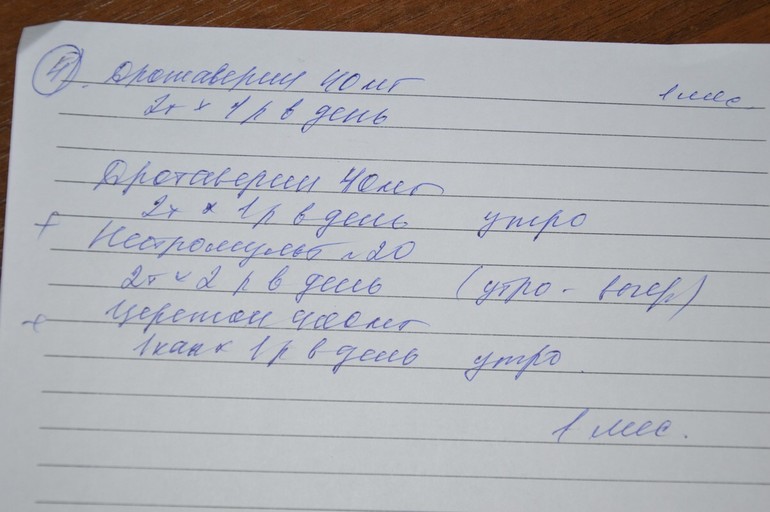 4. Дротаверин 40 мг 1 мес.
2т × 1 р в день
Дротаверин 40 мг
2т × 1 р в день утро
+ Нейромульт №20
2т × 2 р в день (утро - вечер)
+ Церетон 400 мг
1 кап × 1 р в день утро
1 мес.